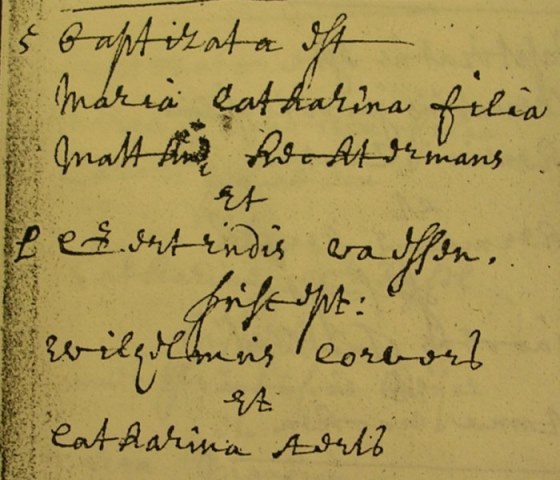 5 Baptizata est
Maria Catharina filia
Matthiæ Hechtermans
et
L Gertrudis Vaessen.
suscept:
Wilhelmus Corvers
et
Catharina Aerts